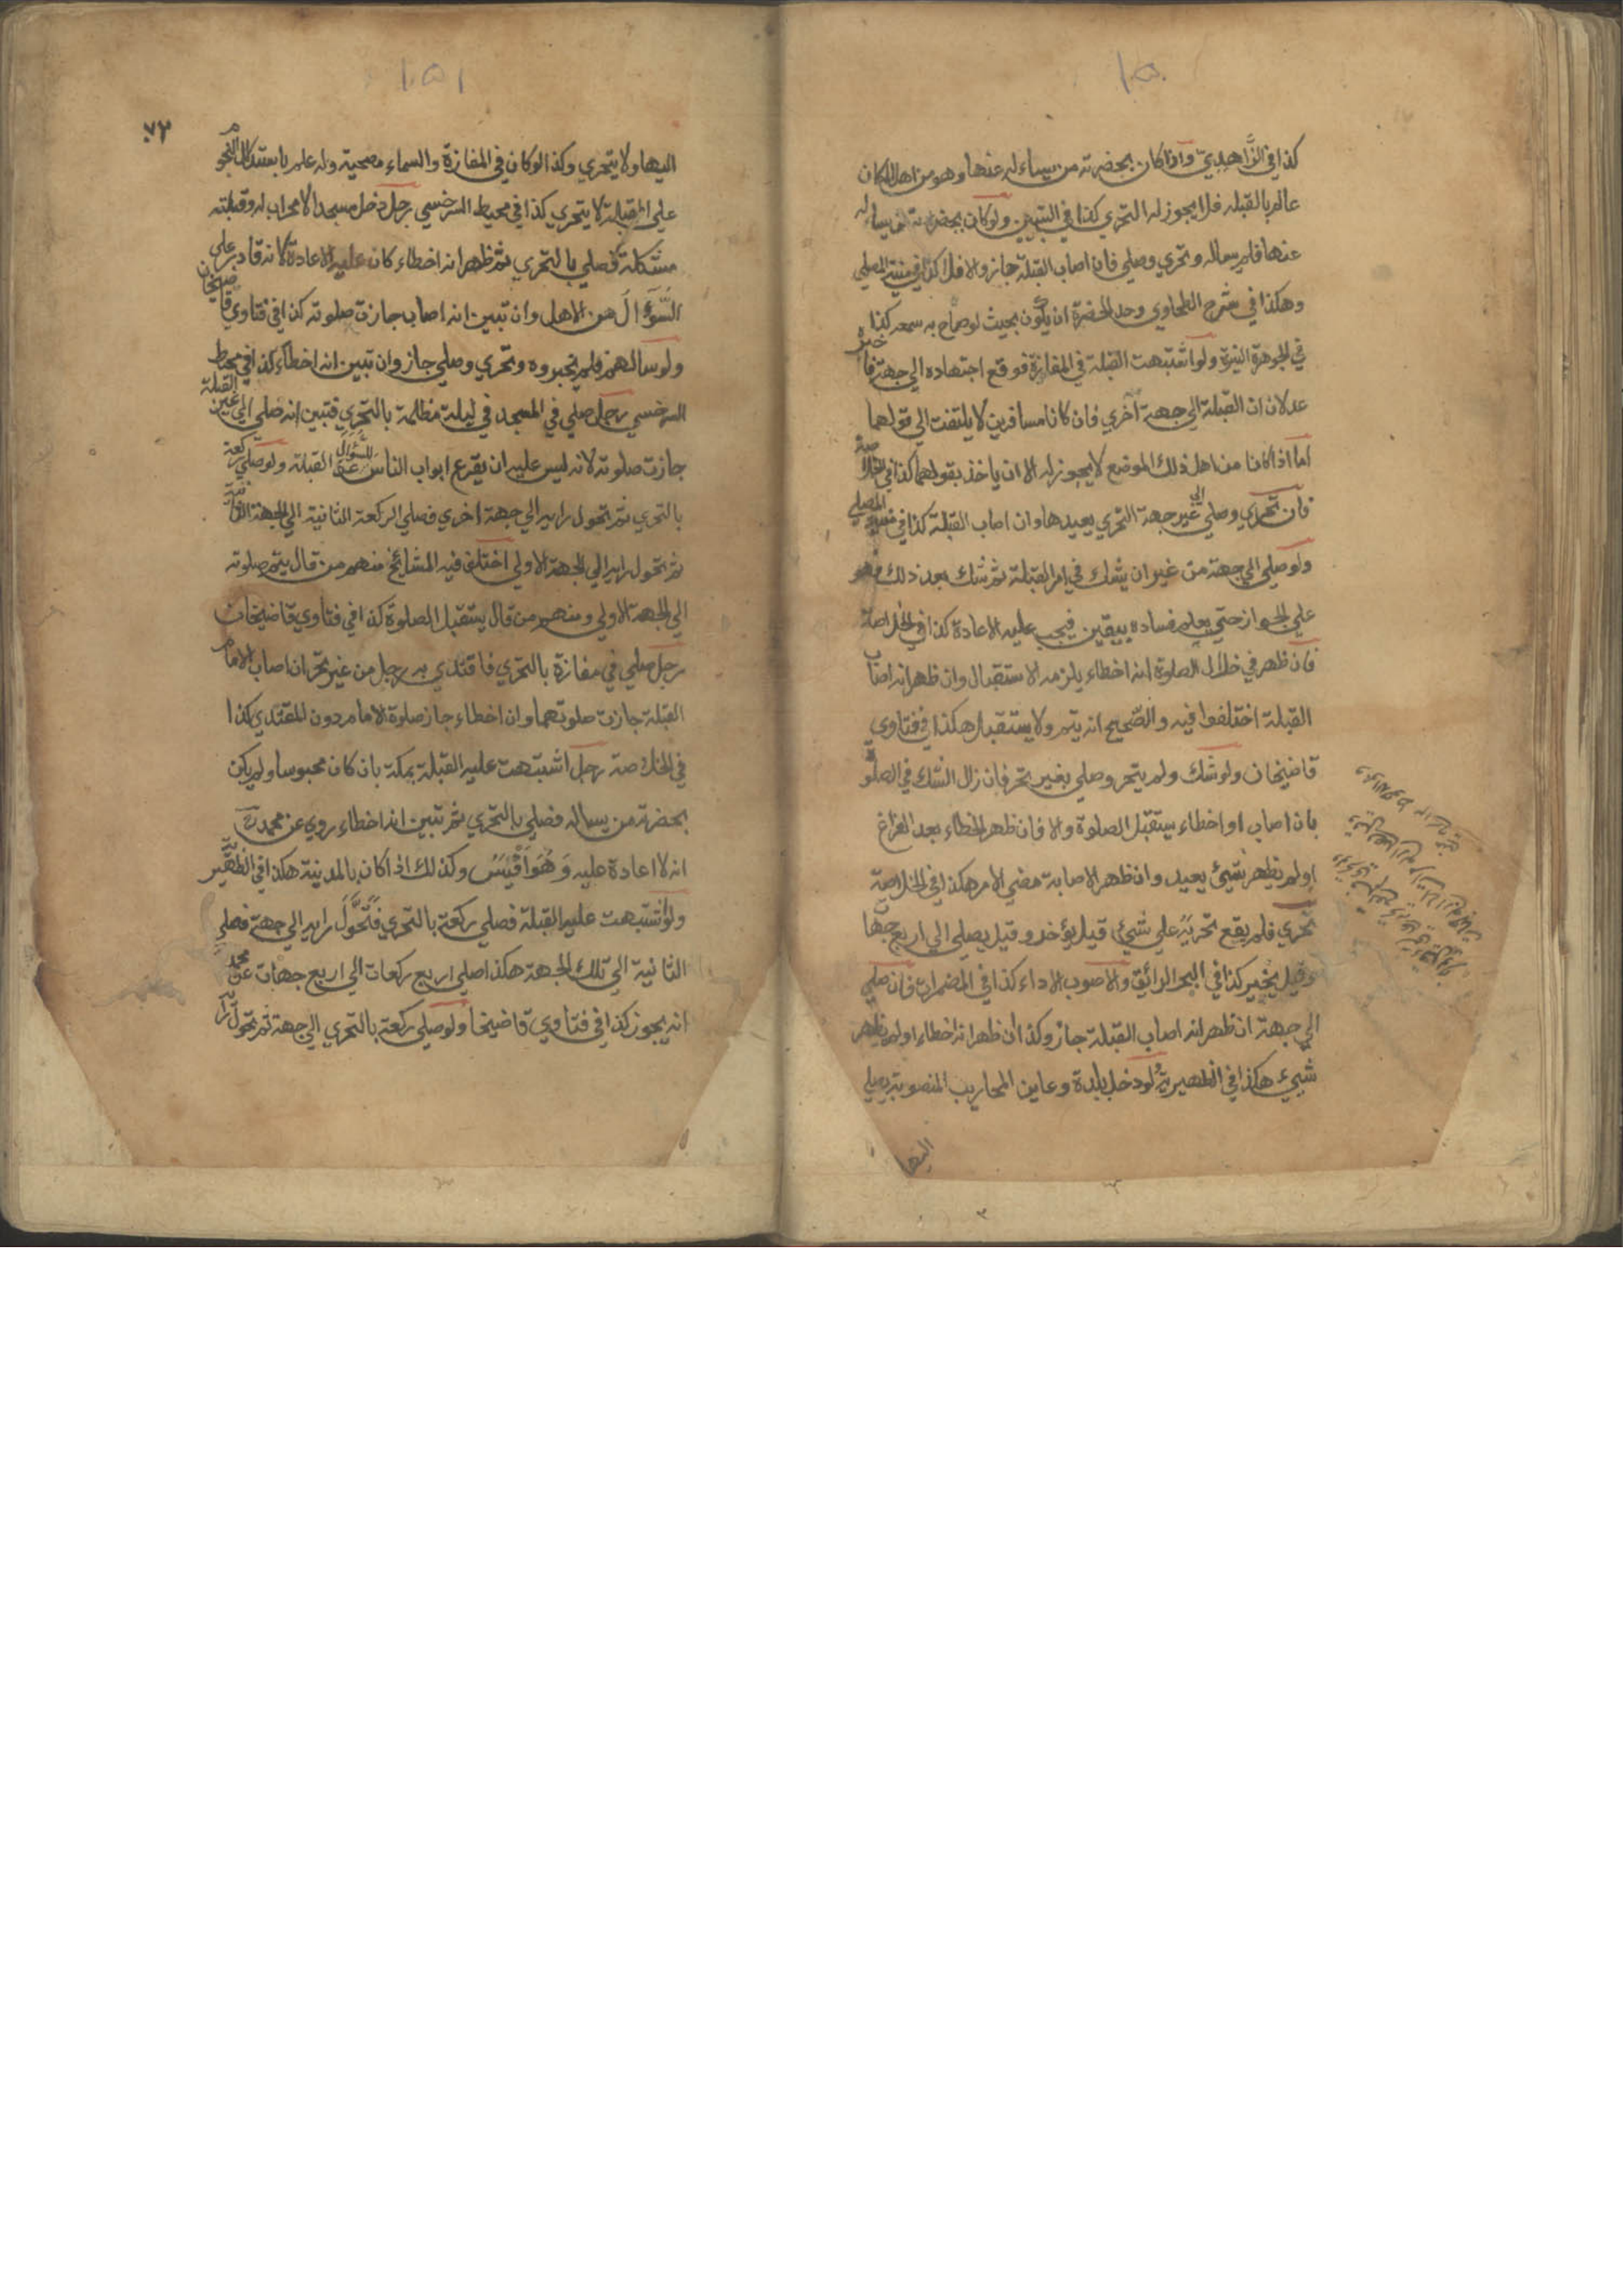 ١٥٠
كذا في الزَّاهديّ واذا كان بحضرته من يسأله عنها وهو من اهل المكان
عالم بالقبله فلا يجوز له التحري كذا في التبيين ولو كان بحضرته من يسأله
عنها فلم يساله وتحري وصلي فان اصاب القبلة جاز والا فلا كذا في منية المصلي
وهكذا في شرح الطحاوي وحد الحضرة ان يكون بحيث لو صاح به سمعه كذا
في الجوهرة النيرة ولو اشتبهت القبلة في المفازة فوقع اجتهاده الي جهة فاخبره
عدلان ان القبلة الي جهة اخري فان كانا مسافرين لا يلتفت الي قولهما
اما اذا كانا من اهل ذلك الموضع لا يجوز له الا ان ياخذ بقولهما كذا في الخلاصة
فان تحري وصلي الي غير جهة التحري يعيدها وان اصاب القبلة كذا في منية المصلي
ولو صلي الي جهة من غير ان يشك في امر القبلة ثم شك بعد ذلك فهو
علي الجواز حتي يعلم فساده بيقين فيجب عليه الاعادة كذا في الخلاصة
فان ظهر في خلال الصلوة انه اخطاء يلزمه الاستقبال وان ظهر انه اصاب
القبلة اختلفوا فيه والصّحيح انه يتم ولا يستقبل هكذا في فتاوي
قاضيخان ولو شك ولم يتحر وصلي بغير تحر فان زال الشك في الصلوة
بان اصاب او اخطاء يستقبل الصلوة والا فان ظهر الخطاء بعد الفراغ
او لم يظهر شيئ يعيد وان ظهر الاصابة مضي الامر هكذا في الخلاصة
تحري فلم يقع تحريه علي شيئ قيل يؤخر وقيل يصلي الي اربع جهات
وقيل يخير كذا في البحر الرائق والاصوب الاداء كذا في المضمرات فان صلي
الي جهة ان ظهر انه اصاب القبلة جاز وكذا ان ظهر انه اخطاء او لم يظهر
شيء هكذا في الظهيرية ولو دخل بلدة وعاين المحاريب المنصوبة يصلي
اليها
١٥١
٧٣
اليها ولا يتحري وكذا لو كان في المفازة والسماء مصحية وله علم باستدلال النجوم
علي القبلة لا يتحري كذا في محيط السرخسي رجل دخل مسجدا لا محراب له وقبلته
مشكلة فصلي بالتحري ثم ظهر انه اخطاء كان عليه الاعادة لانه قادر علي
السُّؤال من الاهل وان تبين انه اصاب جازت صلوته كذا في فتاوي قاضيخان
ولو سالهم فلم يخبروه وتحري وصلي جاز وان تبين انه اخطاء كذا في محيط
السرخسي رجل صلي في المسجد في ليلة مظلمة بالتحري فتبين انه صلي الي غير القبلة
جازت صلوته لانه ليس عليه ان يقرع ابواب الناس للسُّؤال عن القبلة ولو صلي ركعة
بالتحري ثم تحول رايه الي جهة اخري فصلي الركعة الثانية الي الجهة الثانية
ثم تحول رايه الي الجهة الاولي اختلف فيه المشائخ منهم من قال يتم صلوته
الي الجهة الاولي ومنهم من قال يستقبل الصلوة كذا في فتاوي قاضيخان
رجل صلي في مفازة بالتحري فاقتدي به رجل من غير تحر ان اصاب الامام
القبلة جازت صلوتهما وان اخطاء جاز صلوة الامام دون المقتدي كذا
في الخلاصة رجل اشتبهت عليه القبلة بمكة بان كان محبوسا ولم يكن
بحضرته من يساله فصلي بالتحري ثم تبين انه اخطاء روي عن محمد رح
انه لا اعادة عليه وَهُوَ اَقْيَسُ وكذلك اذا كان بالمدينة هكذا في الظهيرية
ولو اشتبهت عليه القبلة فصلي ركعة بالتحري فَتَحَوَّلَ رايه الي جهة فصلي
الثانية الي تلك الجهة هكذا صلي اربع ركعات الي اربع جهات عن محمد
انه يجوز كذا في فتاوي قاضيخان ولو صلي ركعة بالتحري الي جهة ثم تحول رايه